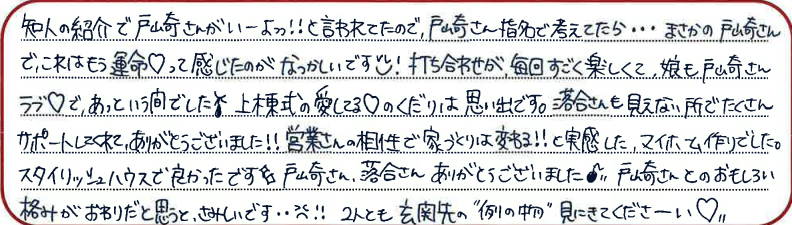 知人の紹介で戸山奇さんがいーよっ!!と言われてたので、戸山奇さん指名で考えてたら・・・まさかの戸山奇さん
で、これはもう運命♡って感じたのがなつかしいです!打ち合わせが、毎回すごく楽しくて、娘も戸山奇さん
ラブ♡で、あっという間でした 上棟式の愛してる♡のくだりは思い出です。落合さんも見えない所でたくさん
サポートしてくれて、ありがとうございました!!営業さんの相性で家づくりは変わる!!と実感した、マイホーム作りでした。
スタイリッシュハウスで良かったです 戸山奇さん、落合さんありがとうございました 戸山奇さんとのおもしろい
絡みがおわりだと思うと、さみしいです・・!! 2人とも玄関先の"例の物"見にきてくださーい♡